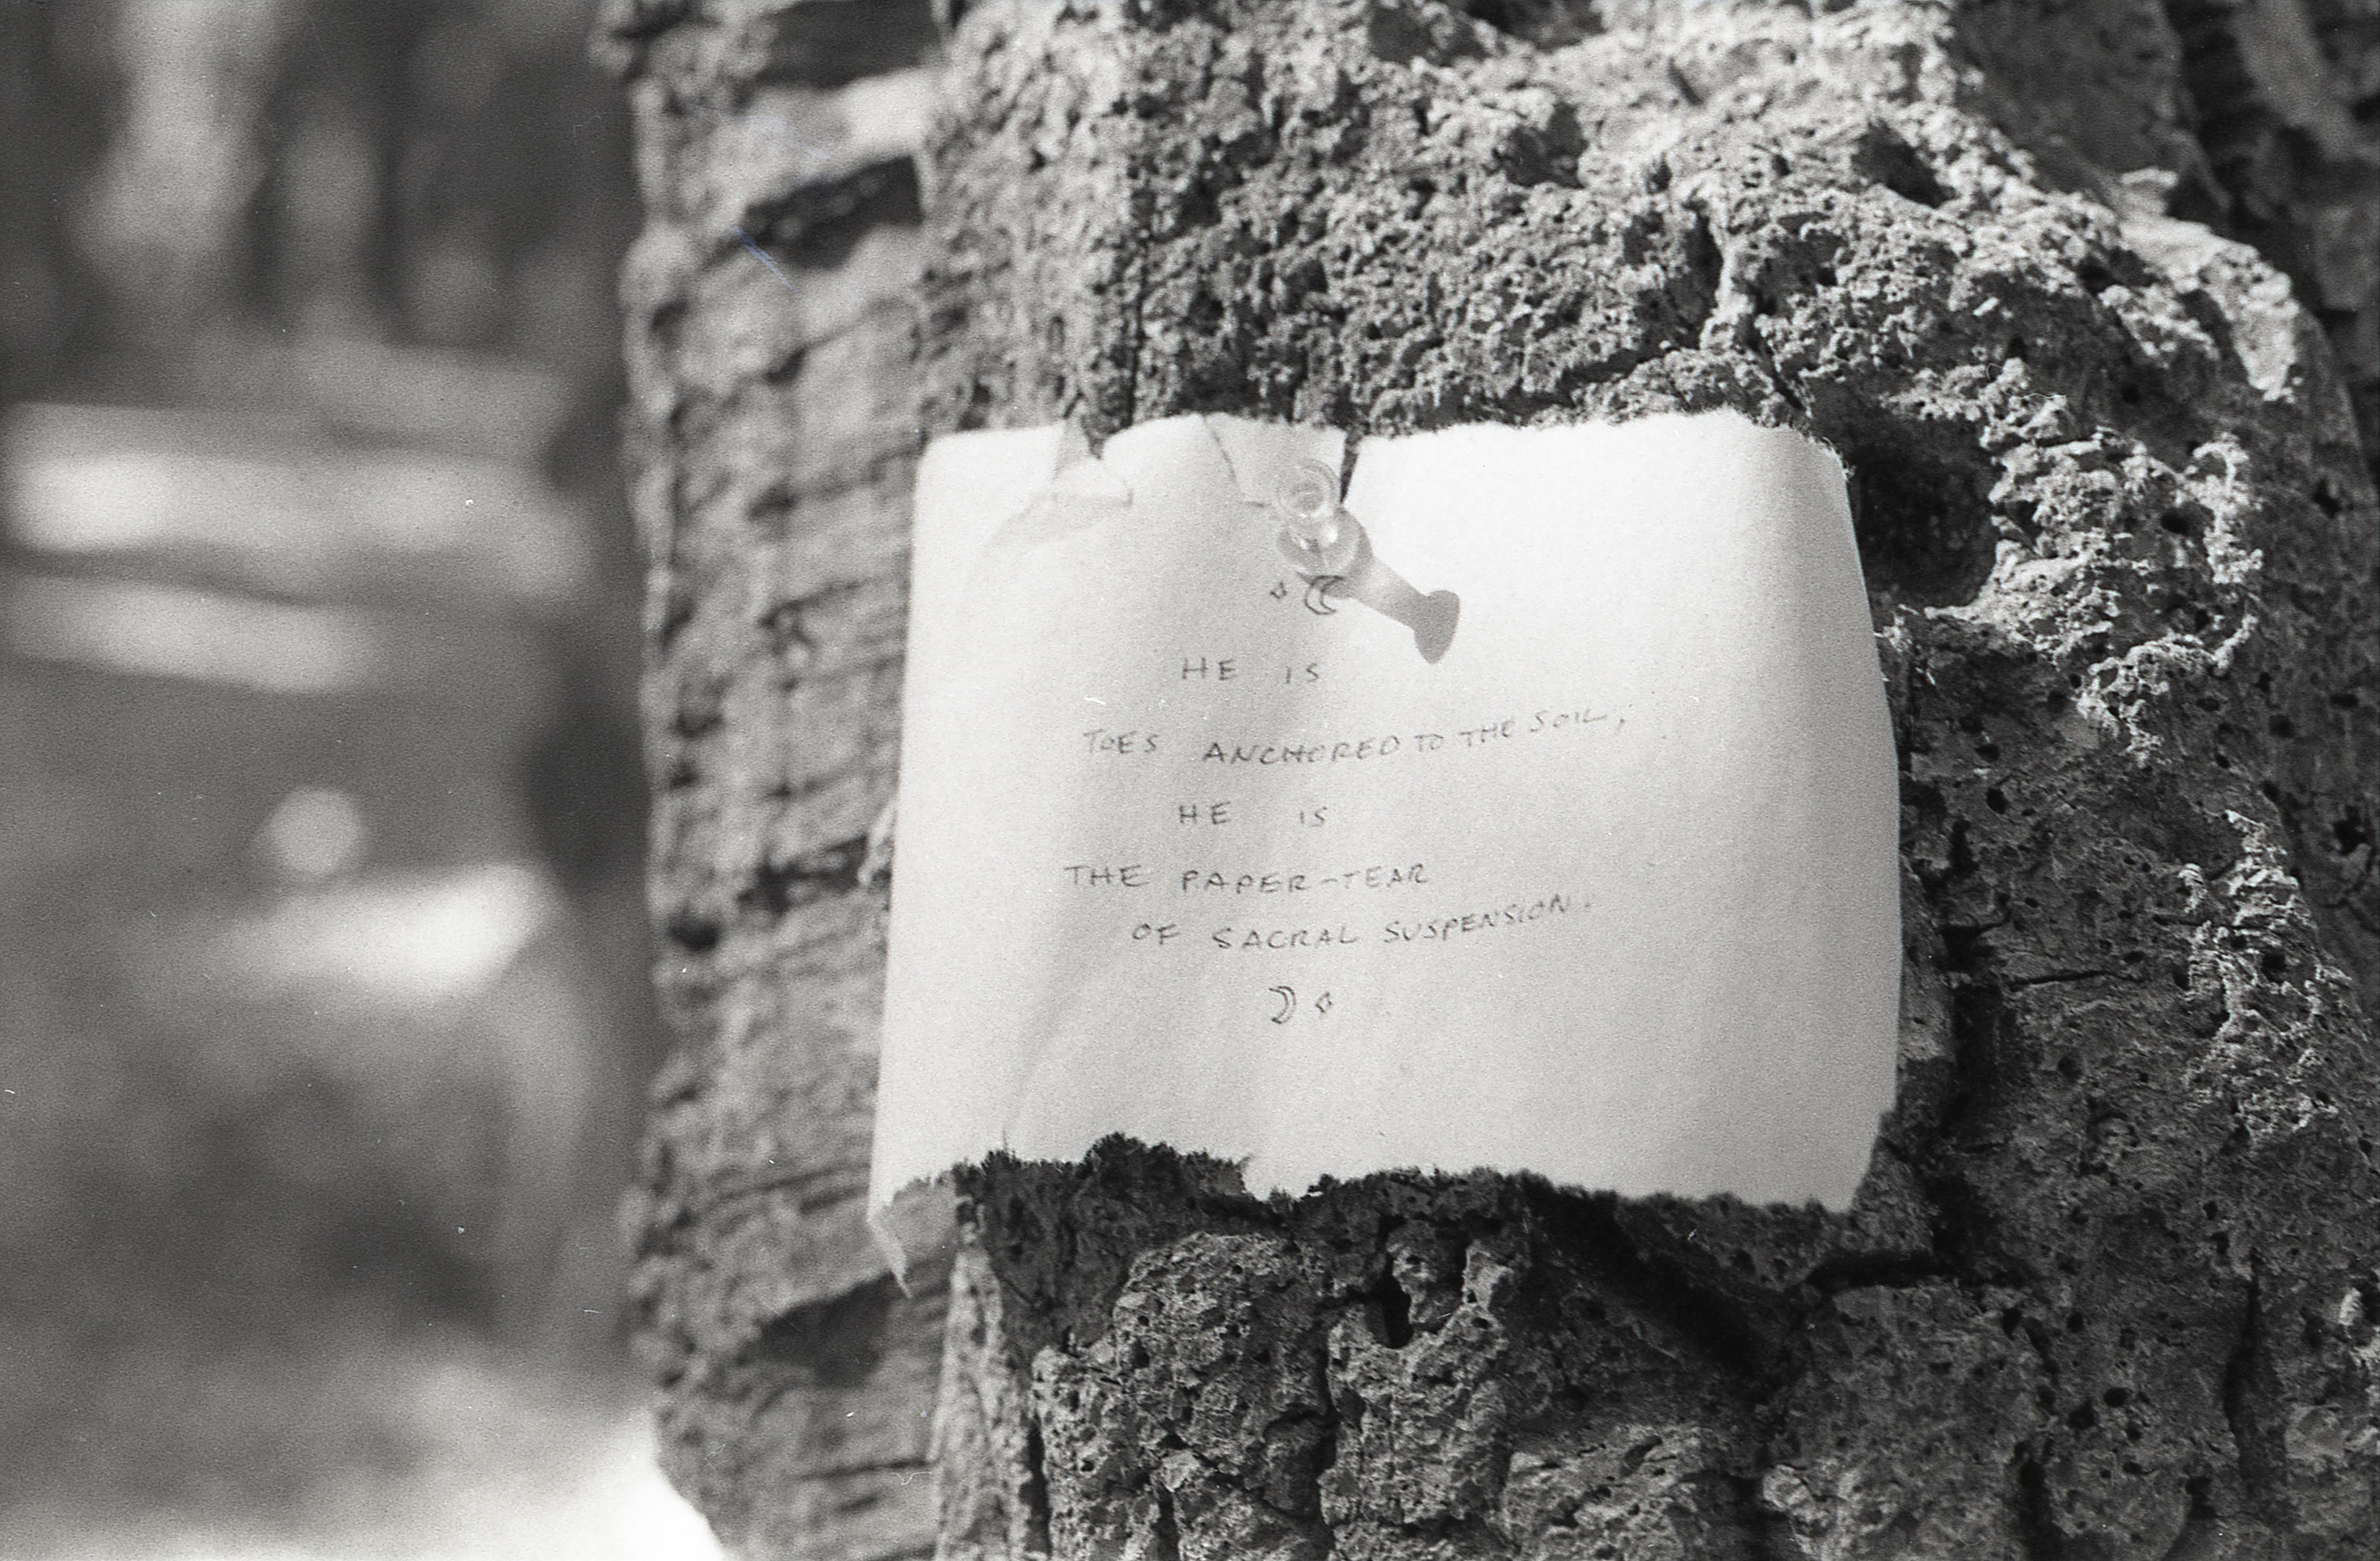 HE IS
TOES ANCHORED TO THE SOIL,
HE IS
THE PAPER-TEAR
OF SACRAL SUSPENSION.